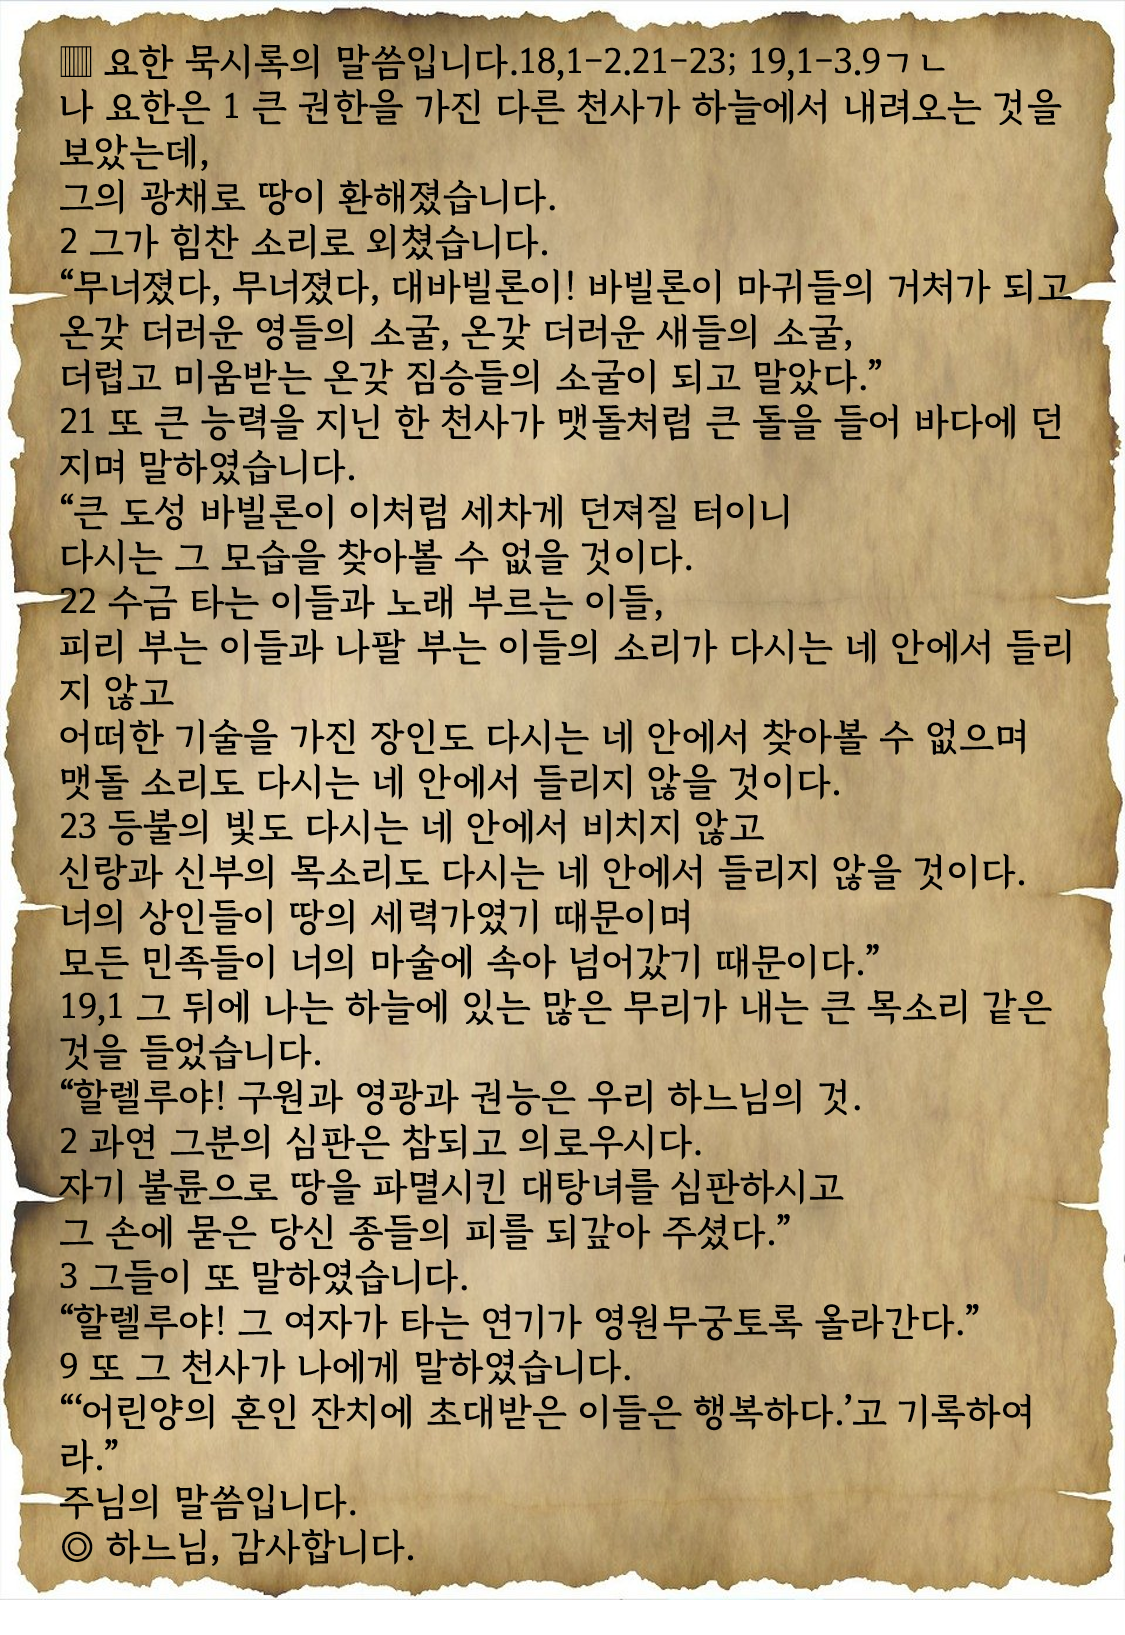 ▥ 요한 묵시록의 말씀입니다.18,1-2.21-23; 19,1-3.9ㄱㄴ
나 요한은 1 큰 권한을 가진 다른 천사가 하늘에서 내려오는 것을
보았는데,
그의 광채로 땅이 환해졌습니다.
2 그가 힘찬 소리로 외쳤습니다.
“무너졌다, 무너졌다, 대바빌론이! 바빌론이 마귀들의 거처가 되고
온갖 더러운 영들의 소굴, 온갖 더러운 새들의 소굴,
더럽고 미움받는 온갖 짐승들의 소굴이 되고 말았다.”
21 또 큰 능력을 지닌 한 천사가 맷돌처럼 큰 돌을 들어 바다에 던
지며 말하였습니다.
“큰 도성 바빌론이 이처럼 세차게 던져질 터이니
다시는 그 모습을 찾아볼 수 없을 것이다.
22 수금 타는 이들과 노래 부르는 이들,
피리 부는 이들과 나팔 부는 이들의 소리가 다시는 네 안에서 들리
지 않고
어떠한 기술을 가진 장인도 다시는 네 안에서 찾아볼 수 없으며
맷돌 소리도 다시는 네 안에서 들리지 않을 것이다.
23 등불의 빛도 다시는 네 안에서 비치지 않고
신랑과 신부의 목소리도 다시는 네 안에서 들리지 않을 것이다.
너의 상인들이 땅의 세력가였기 때문이며
모든 민족들이 너의 마술에 속아 넘어갔기 때문이다.”
19,1 그 뒤에 나는 하늘에 있는 많은 무리가 내는 큰 목소리 같은
것을 들었습니다.
“할렐루야! 구원과 영광과 권능은 우리 하느님의 것.
2 과연 그분의 심판은 참되고 의로우시다.
자기 불륜으로 땅을 파멸시킨 대탕녀를 심판하시고
그 손에 묻은 당신 종들의 피를 되갚아 주셨다.”
3 그들이 또 말하였습니다.
“할렐루야! 그 여자가 타는 연기가 영원무궁토록 올라간다.”
9 또 그 천사가 나에게 말하였습니다.
“‘어린양의 혼인 잔치에 초대받은 이들은 행복하다.’고 기록하여
라.”
주님의 말씀입니다.
◎ 하느님, 감사합니다.